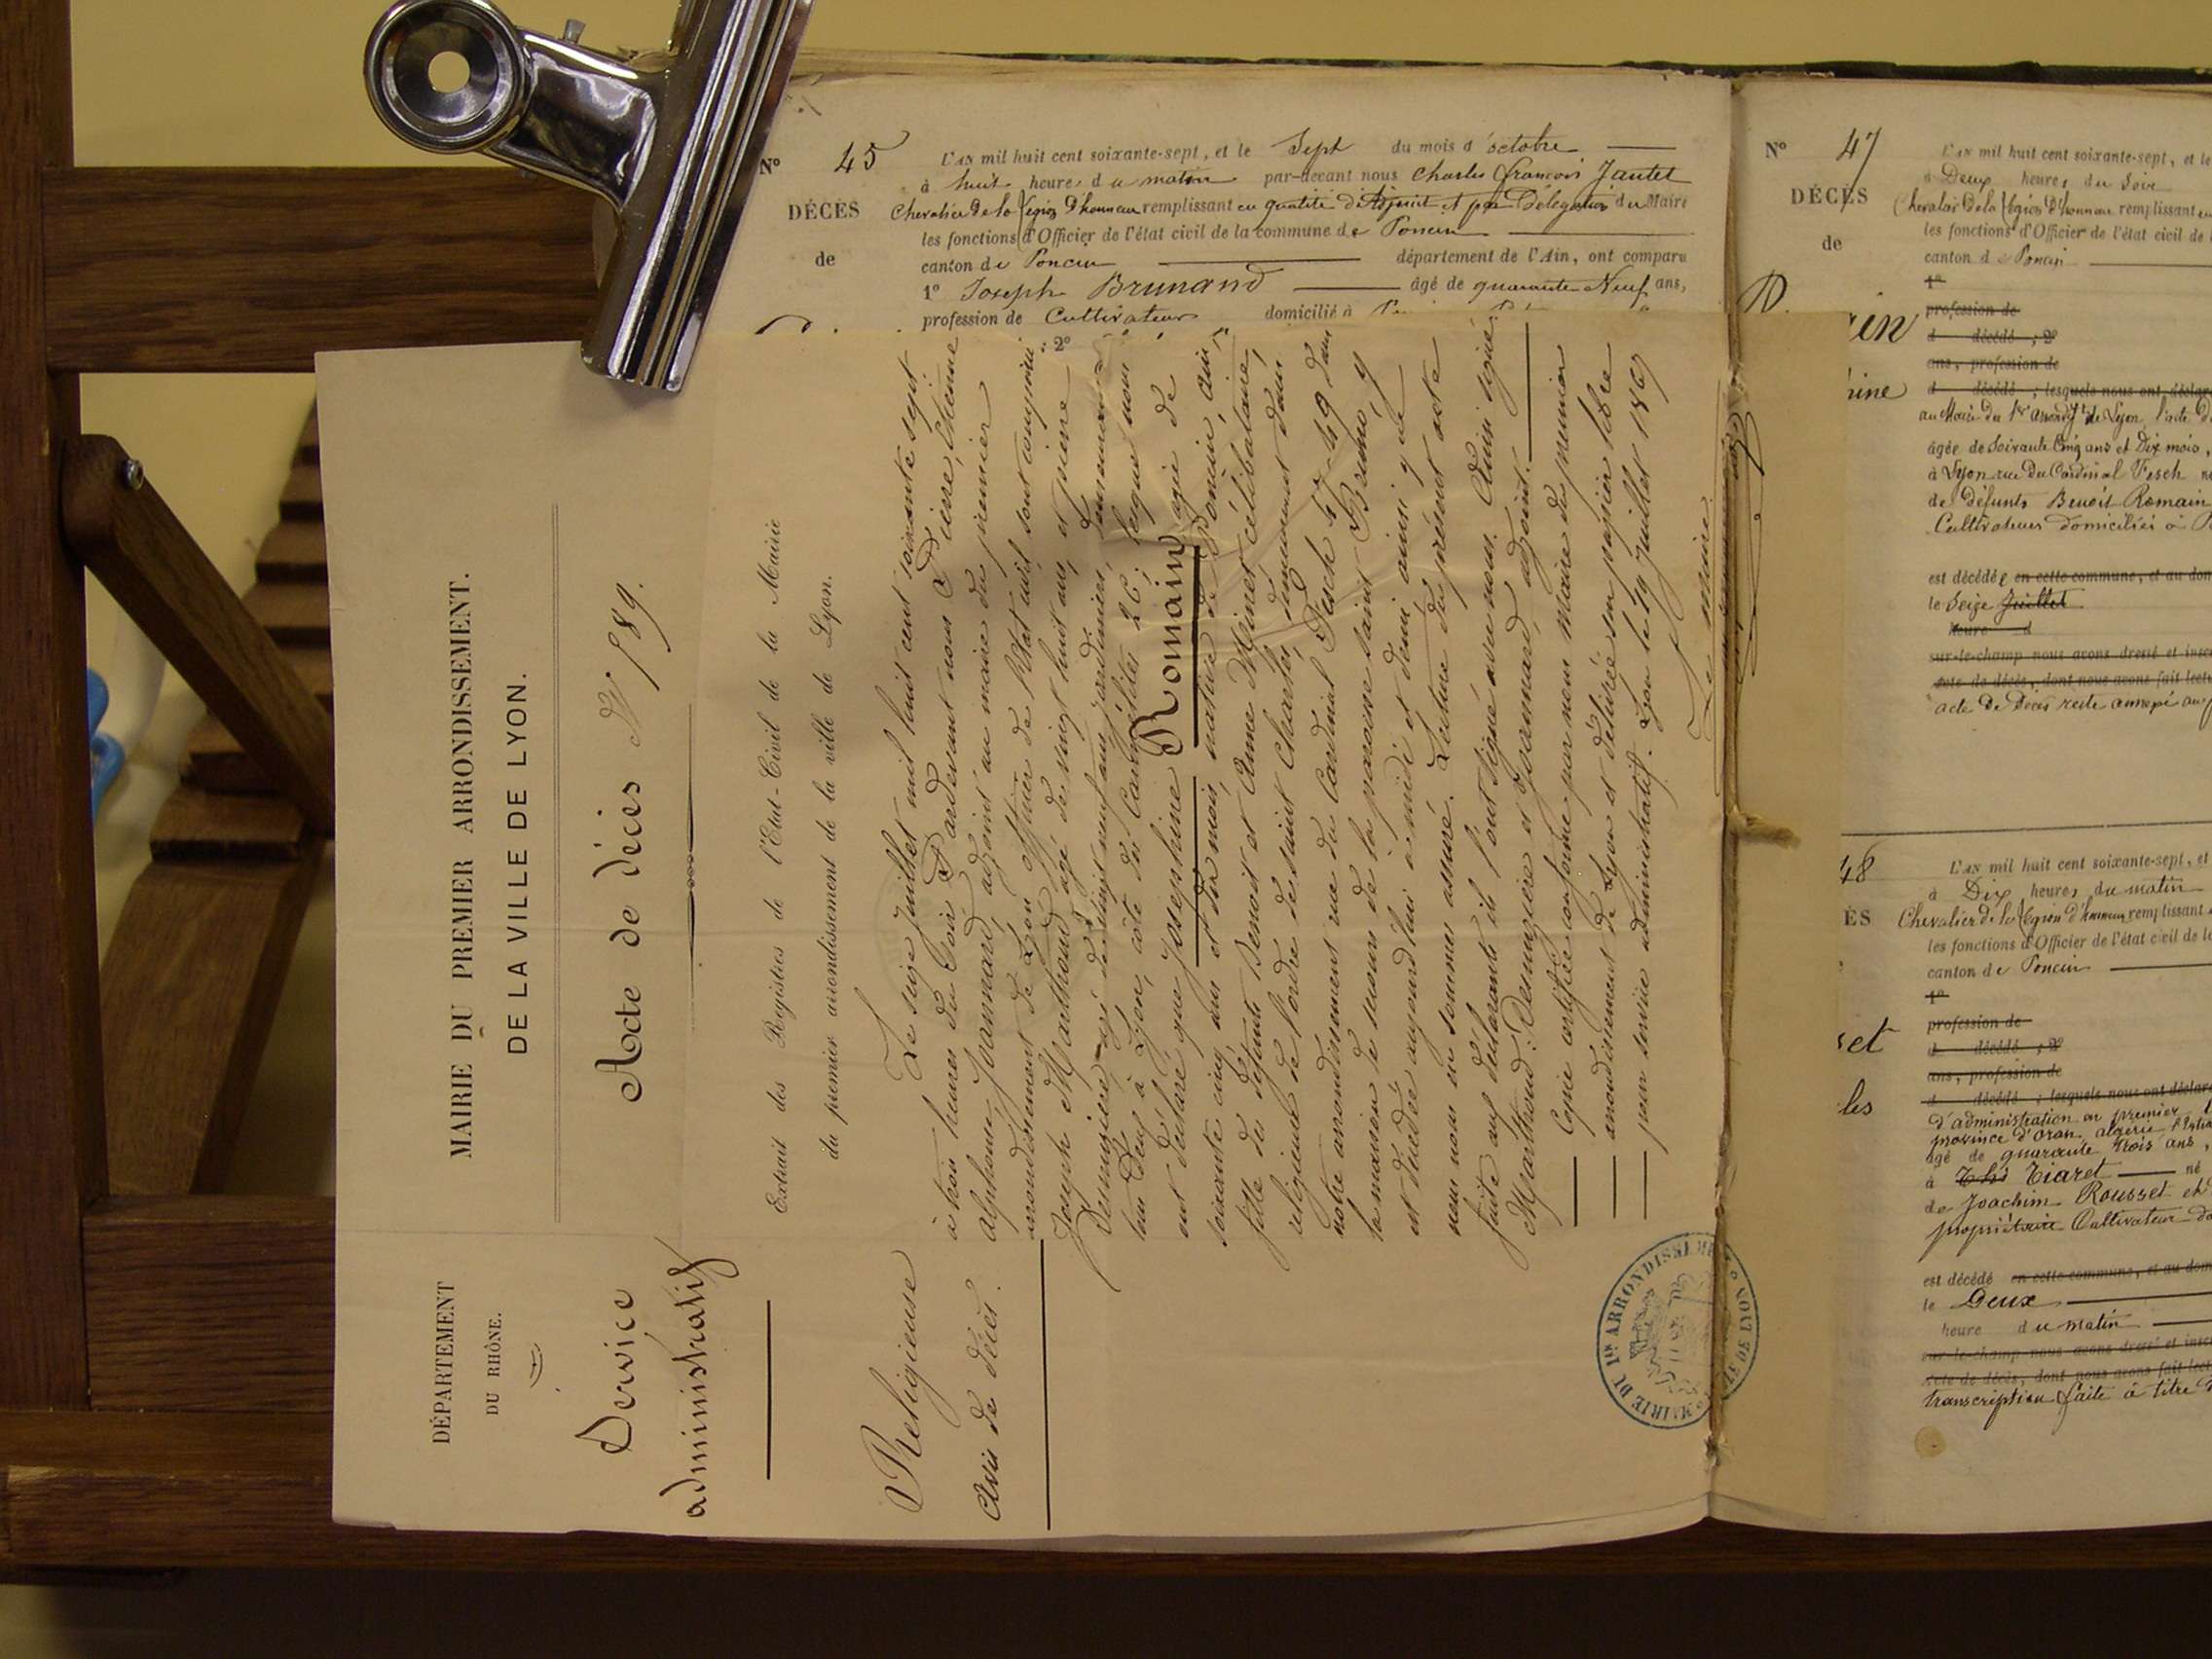 N° 45
L'AN mil huit cent soixante-sept, et le Sept du mois d'octobre
à huit heures du matin par-devant nous Charles François Jantet
DÉCÈS
Chevalier de la Légion d'honneur remplissant en qualité d'Adjoint et par Délégation du Maire
les fonctions d'Officier de l'état civil de la commune de Poncin
de
canton de Poncin département de l'Ain, ont comparu
1° Joseph Brunand âgé de quarante Neuf ans,
profession de Cultivateur domicilié à
2°
DÉPARTEMENT
DU RHÔNE.
MAIRIE DU PREMIER ARRONDISSEMENT.
DE LA VILLE DE LYON.
Service
administratif
Acte de décès N° 589.
Extrait des Registres de l'Etat-Civil de la Mairie
du premier arrondissement de la ville de Lyon.
Religieuse
Avis de décès.
Le seize juillet mil huit cent soixante sept
à trois heures du soir Pardevant nous Pierre, Etienne
Alphonse Joannard, adjoint au maire du premier
arrondissement de Lyon officier de l'Etat civil sont comparus
Joseph Marthoud âgé de vingt huit ans, et pierre
Denuzière âgé de vingt neuf ans, jardiniers, demeurant
tous deux à Lyon, côte des Carmélites 26; lesquels nous
ont déclaré que Josephine Romain, agée de
soixante cinq ans et dix mois, native de Poncin, ain,
fille des défunts Benoit et Anne Meiner, célibataire,
religieuse de l'ordre de saint Charles, demeurant dans
notre arrondissement rue du Cardinal Fesch 47-49 dans
la maison de secours de la paroisse saint Bruno, y
est décédée aujourd'hui à midi et demi ainsi que
nous nous en sommes assuré. Lecture du présent acte
faite aux déclarants ils l'ont signé avec nous. Ainsi signé:
Marthoud, Denuzière et Joannard, adjoint.
Copie certifiée conforme par nous Maire du premier
arrondissement de Lyon et délivrée sur papier libre
pour service administratif. Lyon le 19 juillet 1867
Le maire
MAIRIE DU 1ER ARRONDISSEMENT
VILLE DE LYON
N° 47
L'AN mil huit cent soixante-sept, et le
à Deux heures du soir
DÉCÈS
Chevalier de la Légion d'honneur remplissant en
les fonctions d'Officier de l'état civil de
de
canton de Poncin
1°
profession de
d décédé ; 2°
ans, profession de
d décédé ; lesquels nous ont déclaré
au Maire du 1er arrondt de Lyon, l'acte d
âgée de soixante Cinq ans et Dix mois,
à Lyon rue du Cardinal Fesch
de défunts Benoit Romain
Cultivateurs domiciliés à
est décédée en cette commune, et au dom
le Seize Juillet
heure d
sur-le-champ nous avons dressé et insc
acte de décès, dont nous avons fait lect
acte de Décès reste annexé au
48
L'AN mil huit cent soixante-sept, et
à Dix heures du matin
ÈS
Chevalier de la Légion d'honneur remplissant
les fonctions d'Officier de l'état civil de la
canton de Poncin
1°
profession de
d décédé ; 2°
ans, profession de
d décédé ; lesquels nous ont déclaré
d'administration au premier
province d'Oran algérie
âgé de quarante trois ans,
à Tiaret né
de Joachim Rousset et
propriétaire Cultivateur
est décédé en cette commune, et au dom
le Deux
heure du matin
sur-le-champ nous avons dressé et insc
acte de décès, dont nous avons fait lect
transcription faite à titre